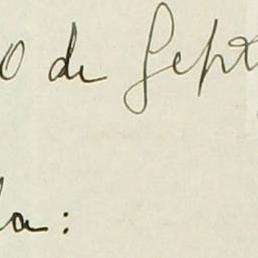 0 de Sept
la: